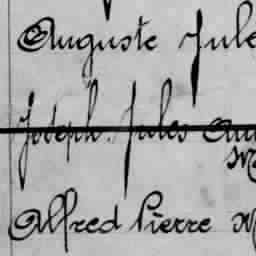 Auguste Jule
Joseph Jules Au
Alfred Pierre